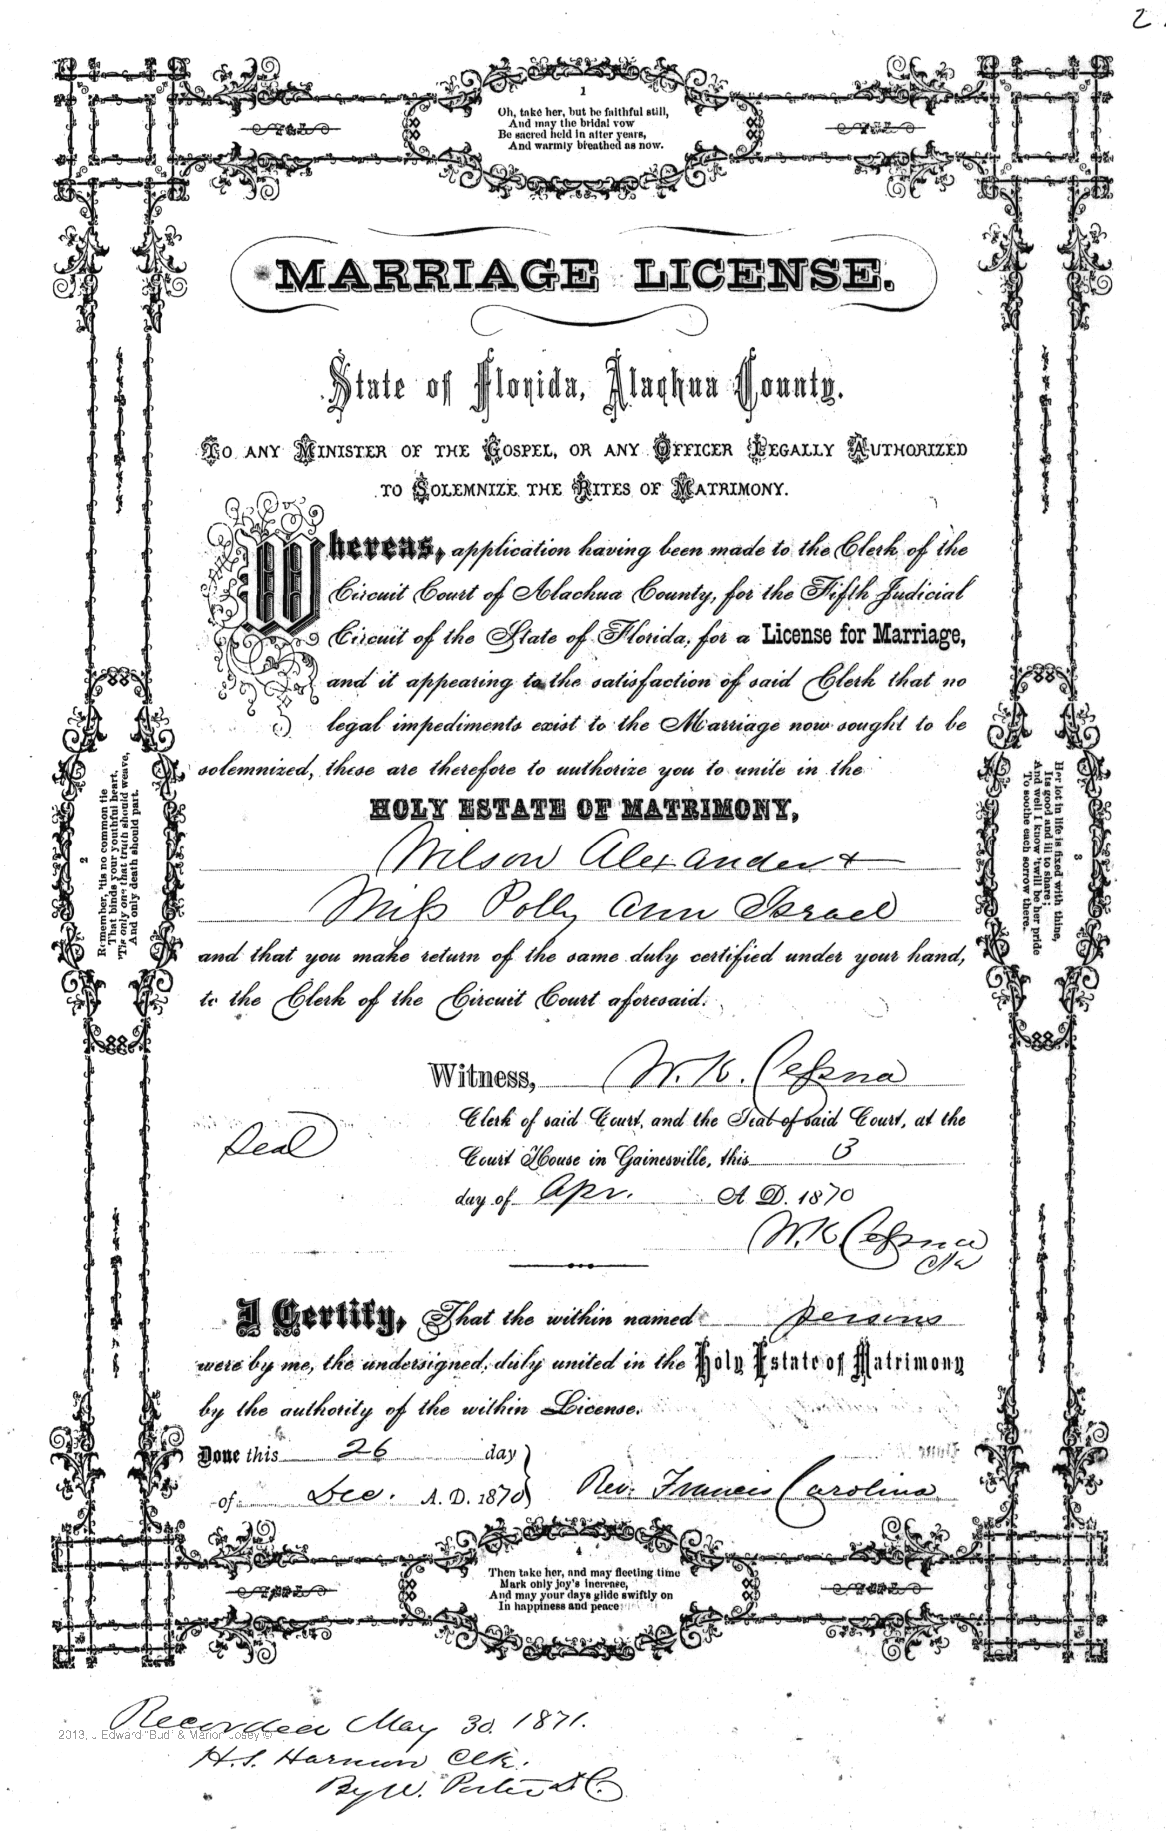 2
1
Oh, take her, but be faithful still,
And may the bridal vow
Be sacred held in after years,
And warmly breathed as now.
MARRIAGE LICENSE.
State of Florida, Alachua County.
TO ANY MINISTER OF THE GOSPEL, OR ANY OFFICER LEGALLY AUTHORIZED
TO SOLEMNIZE THE RITES OF MATRIMONY.
Whereas, application having been made to the Clerk of the
Circuit Court of Alachua County, for the Fifth Judicial
Circuit of the State of Florida, for a License for Marriage,
and it appearing to the satisfaction of said Clerk that no
legal impediments exist to the Marriage now sought to be
solemnized, these are therefore to authorize you to unite in the
HOLY ESTATE OF MATRIMONY,
Wilson Alexander +
Miss Polly Ann Israel
and that you make return of the same duly certified under your hand,
to the Clerk of the Circuit Court aforesaid.
2
Remember, 'tis no common tie
That binds your youthful heart,
'Tis only one that truth should weave,
And only death should part.
3
Her lot in life is fixed with thine,
Its good and ill to share;
And well I know 'twill be her pride
To soothe each sorrow there.
Witness, W. K. Cessna
Clerk of said Court, and the Seal of said Court, at the
Seal
Court House in Gainesville, this 13
day of Apr. A D. 1870
W. K. Cessna
Clk
I Certify, That the within named persons
were by me, the undersigned, duly united in the Holy Estate of Matrimony
by the authority of the within License.
Done this 26 day
of Dec. A. D. 1870 Rev. Francis Carolina
4
Then take her, and may fleeting time
Mark only joy's increase,
And may your days glide swiftly on
In happiness and peace
Recorded May 30. 1871.
2013, J Edward "Bud" & Marion Josey ©
H. S. Harmon Clk.
By W. Porter D. C.